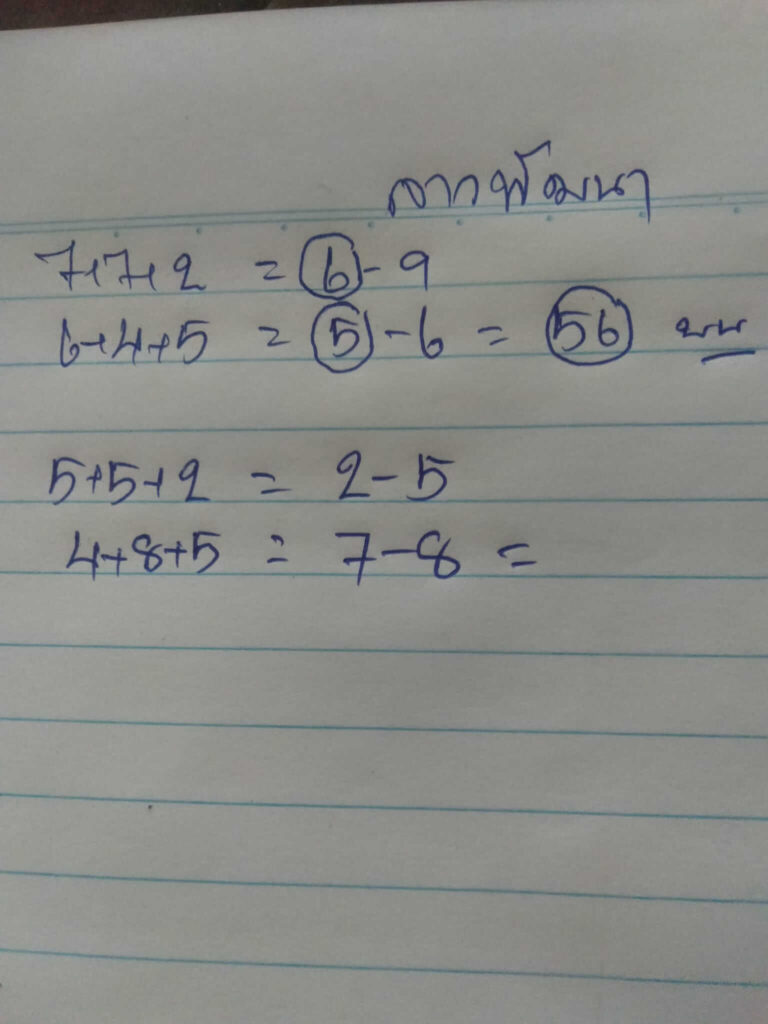 ลาวพัฒนา
7+7+2 = 6-9
6+4+5 = 5-6 = 56 บน
5+5+2 = 2-5
4+8+5 = 7-8 =